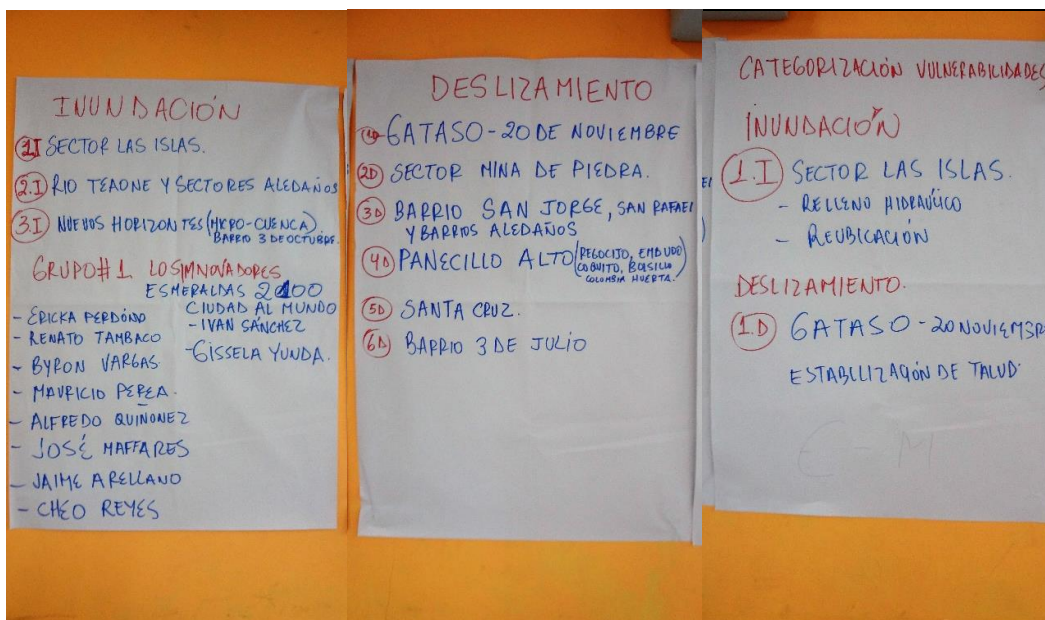 INUNDACIÓN
1.I SECTOR LAS ISLAS.
2.I RIO TEAONE Y SECTORES ALEDAÑOS
3.I NUEVOS HORIZONTES (MICRO-CUENCA)
BARRIO 3 DE OCTUBRE.
GRUPO # 1 LOS INNOVADORES
ESMERALDAS 2100
CIUDAD AL MUNDO
- ERICKA PERDOMO
- RENATO TAMBACO
- BYRON VARGAS.
- MAURICIO PEREA.
- ALFREDO QUIÑONEZ
- JOSÉ MAFFARES
- JAIME ARELLANO
- CHEO REYES
- IVAN SÁNCHEZ
- GISSELA YUNDA.
DESLIZAMIENTO
1D GATASO - 20 DE NOVIEMBRE
2D SECTOR MINA DE PIEDRA.
3D BARRIO SAN JORGE, SAN RAFAEL
Y BARRIOS ALEDAÑOS
4D PANECILLO ALTO (REGOCIJO, EMBUDO
COQUITO, BOLSILLO
COLOMBIA HUERTA.
5D SANTA CRUZ.
6D BARRIO 3 DE JULIO
CATEGORIZACIÓN VULNERABILIDADES
INUNDACIÓN
1.I SECTOR LAS ISLAS.
- RELLENO HIDRAÚLICO
- REUBICACIÓN
DESLIZAMIENTO.
1.D GATASO - 20 NOVIEMBR
ESTABILIZACIÓN DE TALUD.